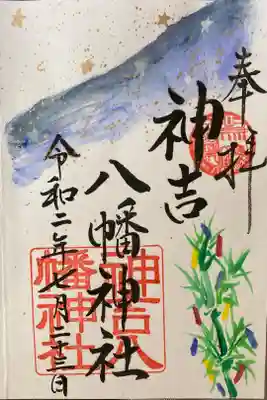 奉拝
神吉
八幡神社
令和二年七月二十三日
神吉八
幡神社